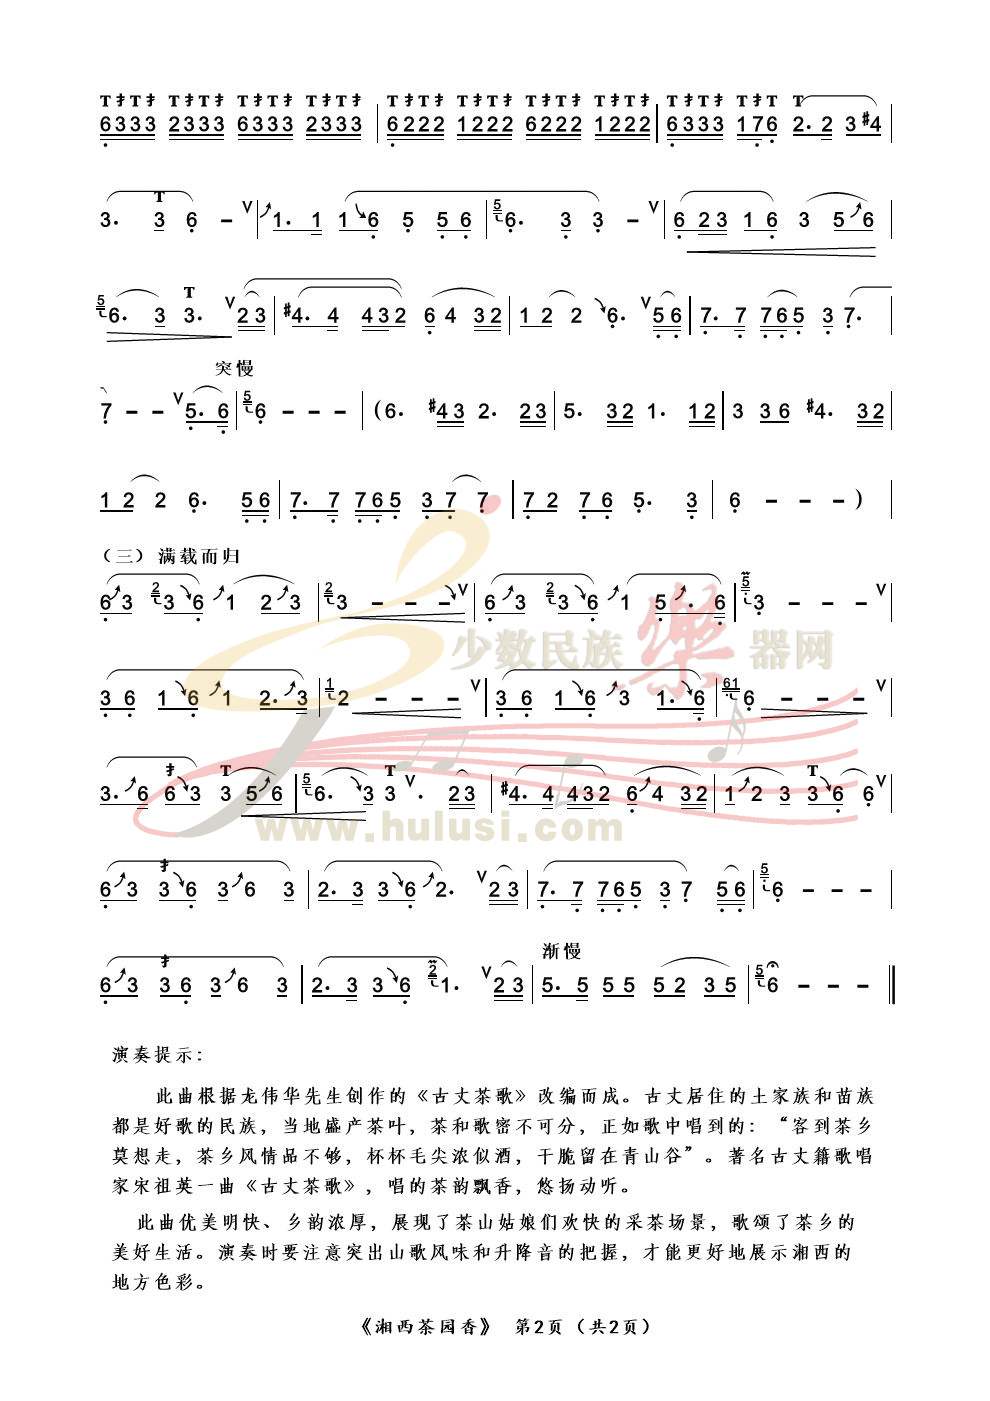 T扌T扌 T扌T扌 T扌T扌 T扌T扌 T扌T扌 T扌T扌 T扌T扌 T扌T扌 T扌T扌 T扌T T
6333 2333 6333 2333 | 6222 1222 6222 1222 | 6333 176 2. 2 3 #4 |
T
3. 3 6 - V | 1. 1 1 6 5 5 6 | 5 6. 3 3 - V | 6 23 1 6 3 5 6 |
T
5 6. 3 3. V 23 | #4. 4 432 6 4 32 | 1 2 2 6. V 56 | 7. 7 765 3 7. |
突慢
7 - - V 5. 6 | 5 6 - - - | (6. #43 2. 23 | 5. 32 1. 12 | 3 36 #4. 32 |
1 2 2 6. 56 | 7. 7 765 3 7 7 | 7 2 7 6 5. 3 | 6 - - - ) |
(三)满载而归
6 3 2 3 6 1 2 3 | 2 3 - - - V | 6 3 2 3 6 1 5 . 6 | 5 3 - - - V
少数民族樂器网
3 6 1 6 1 2. 3 | 1 2 - - - V | 3 6 1 6 3 1. 6 | 61 6 - - - V
扌 T T T
3. 6 6 3 3 5 6 | 5 6. 3 3 V . 23 | #4. 4 432 6 4 32 | 1 2 3 3 6 6 V
www.hulusi.com
扌
6 3 3 6 3 6 3 | 2. 3 3 6 2. V 23 | 7. 7 765 3 7 56 | 5 6 - - - |
扌 渐慢
6 3 3 6 3 6 3 | 2. 3 3 6 2 1. V 23 | 5. 5 5 5 5 2 3 5 | 5 6 - - - ‖
演奏提示：
此曲根据龙伟华先生创作的《古丈茶歌》改编而成。古丈居住的土家族和苗族
都是好歌的民族，当地盛产茶叶，茶和歌密不可分，正如歌中唱到的：“客到茶乡
莫想走，茶乡风情品不够，杯杯毛尖浓似酒，干脆留在青山谷”。著名古丈籍歌唱
家宋祖英一曲《古丈茶歌》，唱的茶韵飘香，悠扬动听。
此曲优美明快、乡韵浓厚，展现了茶山姑娘们欢快的采茶场景，歌颂了茶乡的
美好生活。演奏时要注意突出山歌风味和升降音的把握，才能更好地展示湘西的
地方色彩。
《湘西茶园香》 第2页（共2页）